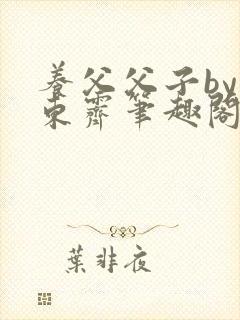 養父父子by
东霽筆趣閣
葉非夜